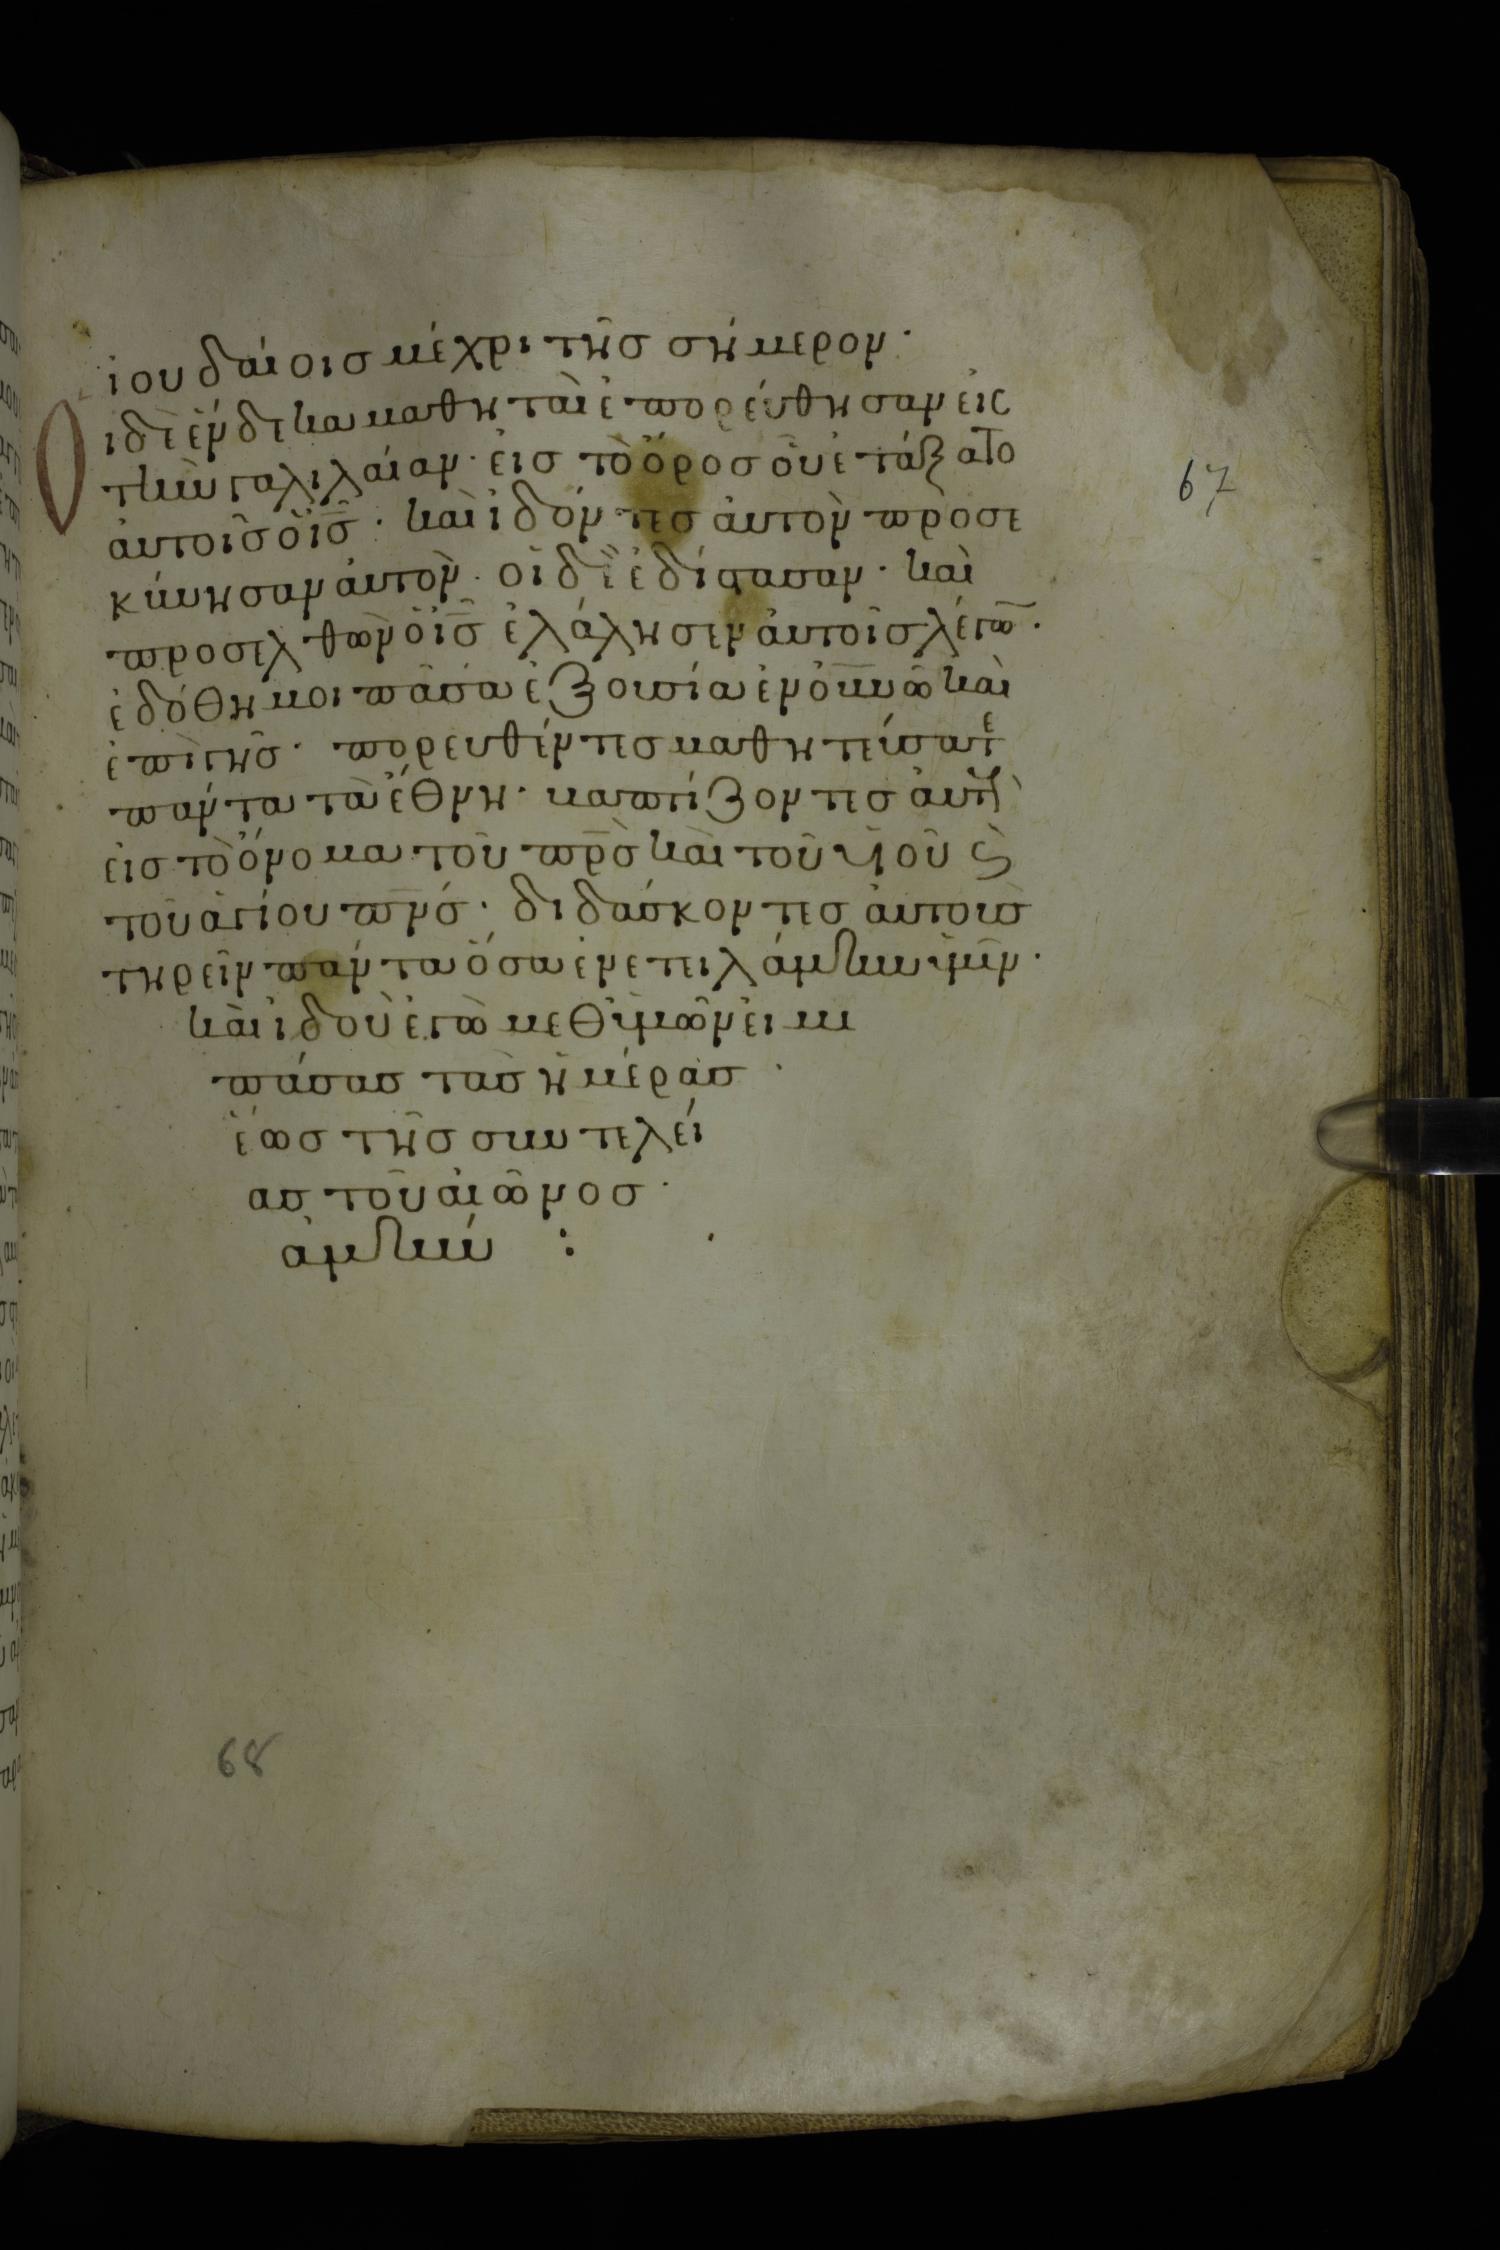 ἰουδαίοις μέχρι τῆς σήμερον·
Οἱ δὲ ἕνδεκα μαθηταὶ ἐπορεύθησαν εἰς
τὴν γαλιλαίαν· εἰς τὸ ὄρος οὗ ἐτάξατο
67
αὐτοῖς ὁ ις̅· καὶ ἰδόντες αὐτὸν προσε
κύνησαν αὐτον· οἱ δὲ ἐδίστασαν· καὶ
προσελθὼν ὁ ις̅ ἐλάλησεν αὐτοῖς λέγω̅·
ἐδόθη μοι πᾶσα ἐξουσία ἐν ο̅υ̅ν̅ω̅ καὶ
ἐπὶ γῆς· πορευθέντες μαθητεύσατε
πάντα τὰ ἔθνη· βαπτίζοντες αὐτοὺς
εἰς τὸ ὄνομα τοῦ πρ̅ς καὶ τοῦ υἱοῦ ϗ
τοῦ ἁγίου πν̅ς· διδάσκοντες αὐτοὺς
τηρεῖν πάντα ὅσα ἐνετειλάμην ὑμῖν·
καὶ ἰδοὺ ἐγὼ μεθ ὑμῶν εἰμι
πάσας τὰς ἡμέρας·
ἕως τῆς συντελεί
ας τοῦ αἰῶνος·
ἀμήν :
68